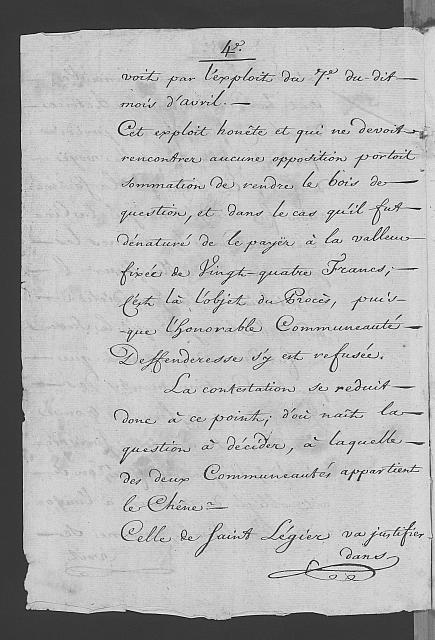 4º.
voit par l'exploit du 7e. du-dit
mois d'avril. —
Cet exploit honête et qui ne devoit
rencontrer aucune opposition portoit
sommation de rendre le bois de
question, et dans le cas qu'il fut
dénaturé de le payër à la valleur
fixée de Vingt-quatre Francs; —
C'est là l'objet du Procès, puis-
-que l'honorable Communeauté —
Deffenderesse s'y est refusée.
La contestation se reduit —
donc à ce point; d'où naît la —
question à décider, à laquelle —
des deux Communeautés appartient
le Chêne —
Celle de Saint Légier va justifier
dans